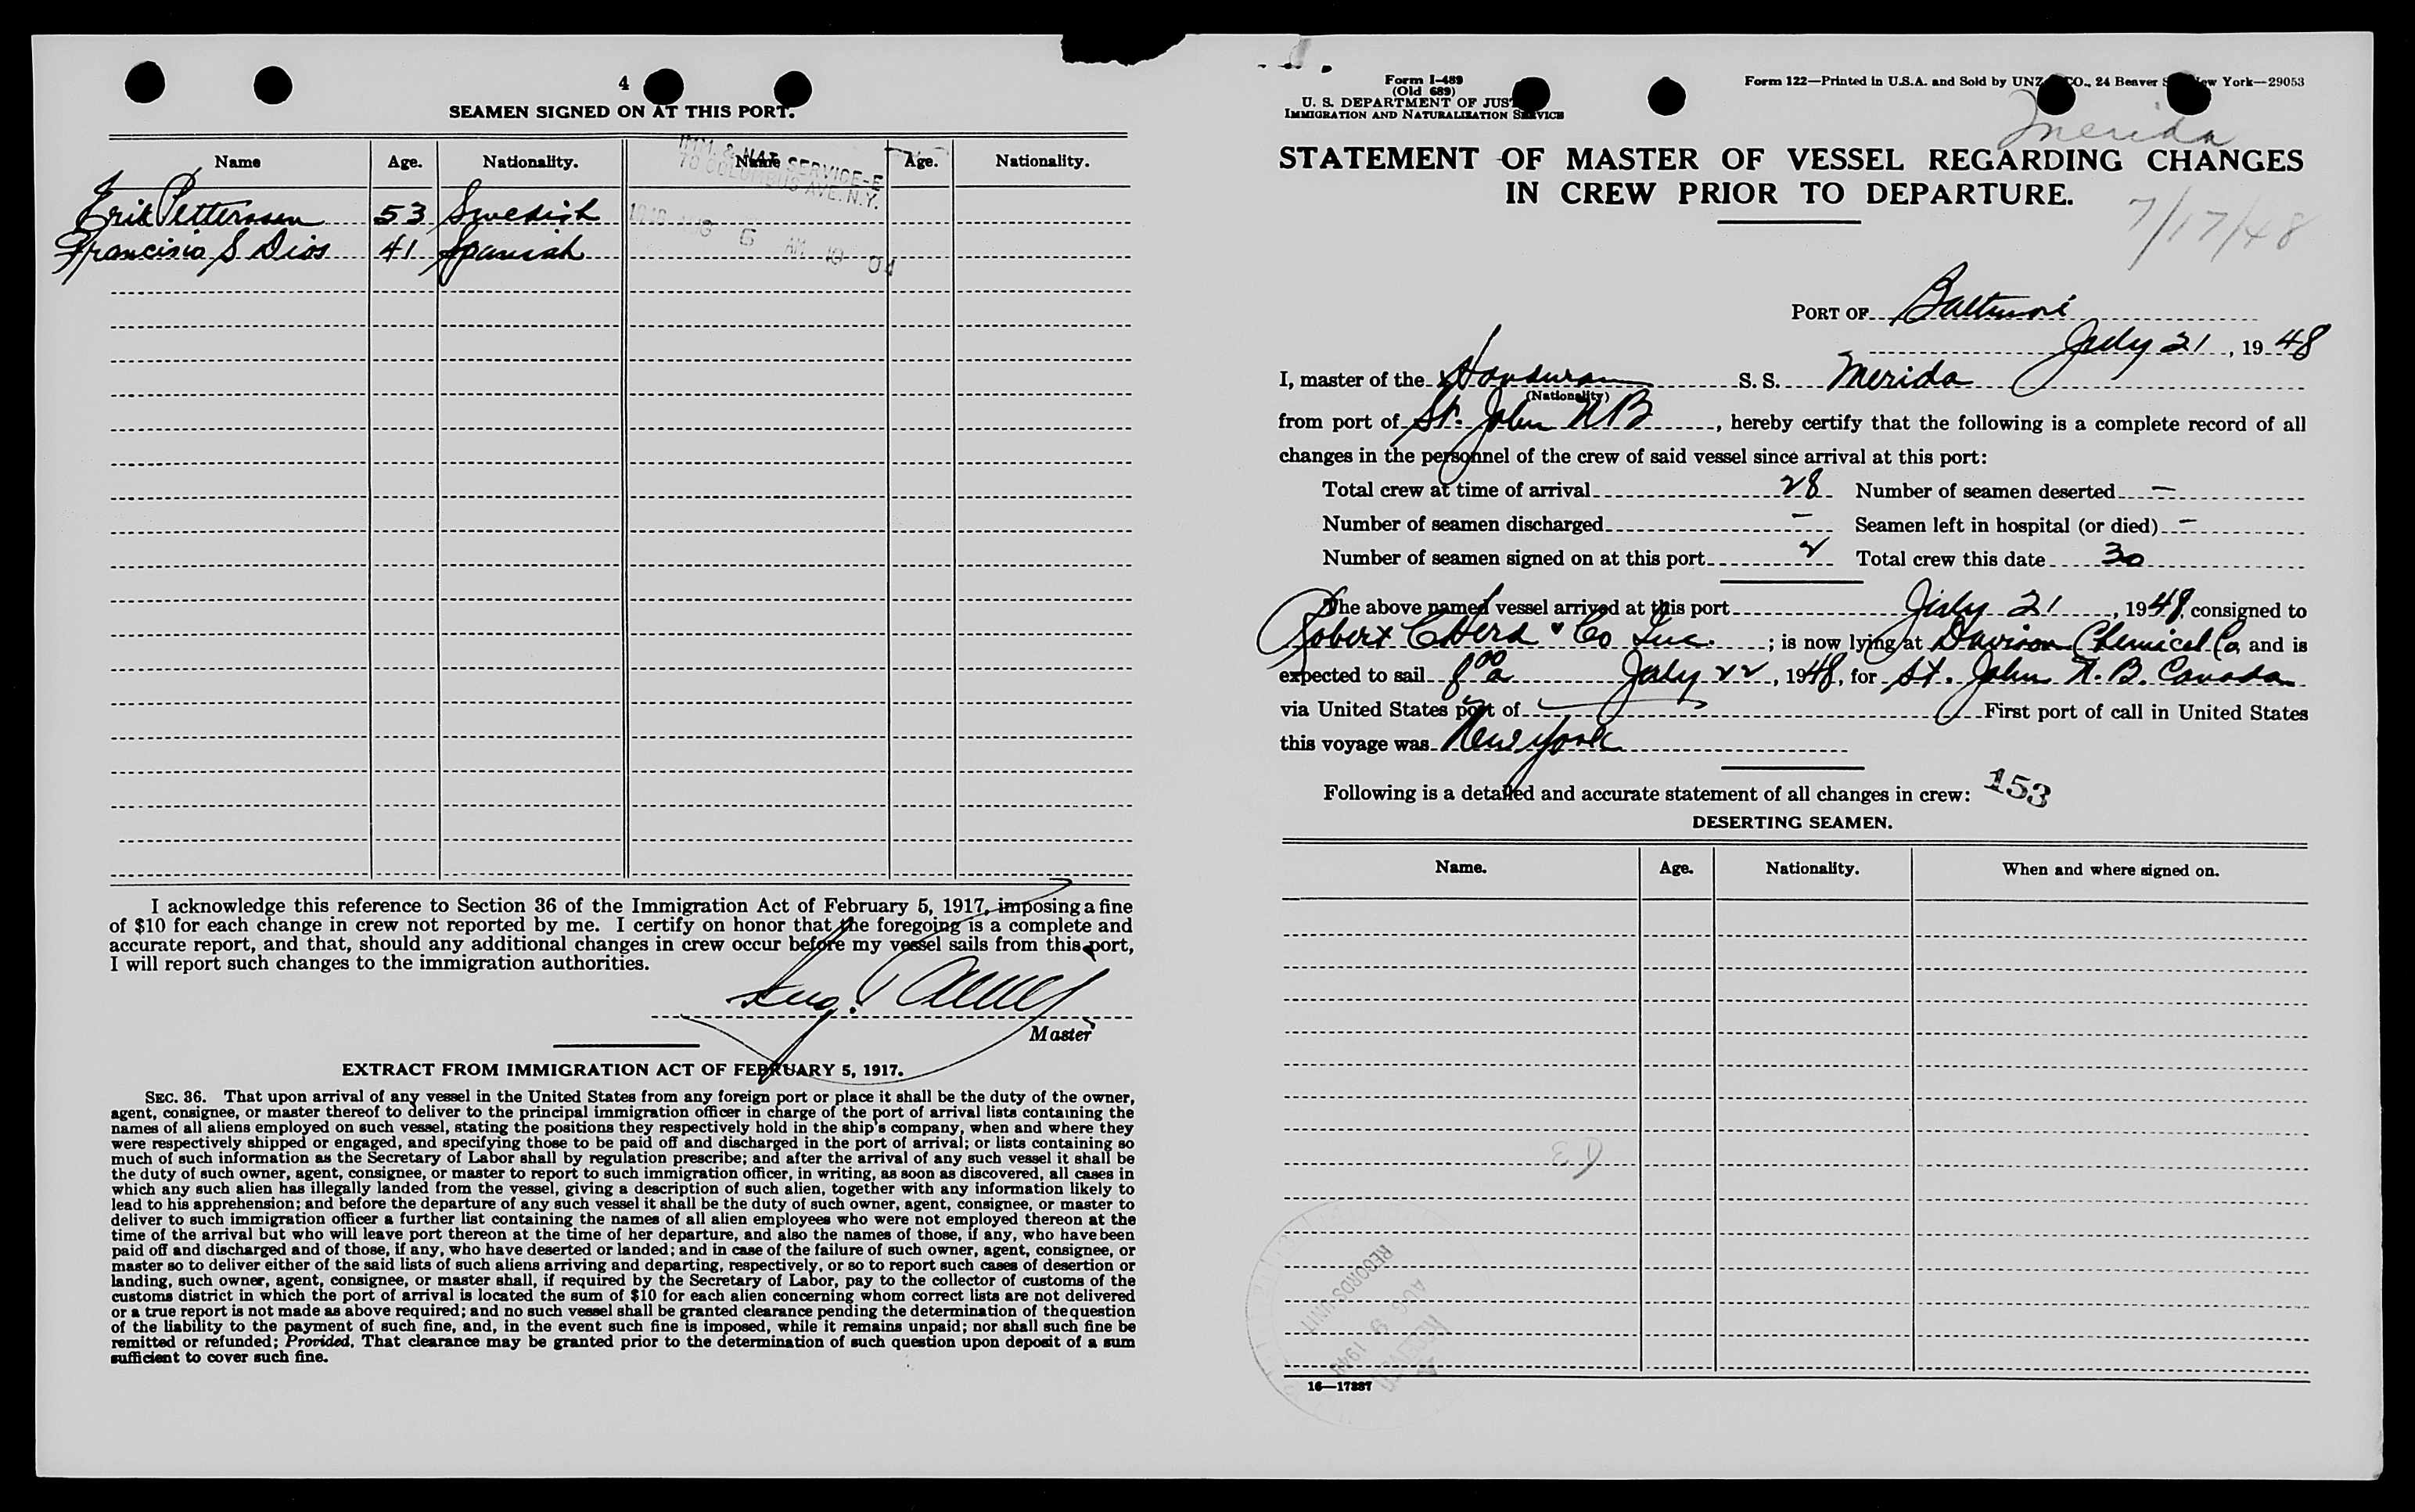 4
SEAMEN SIGNED ON AT THIS PORT.
Name Age. Nationality. Name Age. Nationality.
IMM. & NAT. SERVICE-E
70 COLUMBUS AVE. N.Y.
6 AM 10 04
Erik Petterssen 53 Swedish
Francisco S Dios 41 Spanish
I acknowledge this reference to Section 36 of the Immigration Act of February 5, 1917, imposing a fine
of $10 for each change in crew not reported by me. I certify on honor that the foregoing is a complete and
accurate report, and that, should any additional changes in crew occur before my vessel sails from this port,
I will report such changes to the immigration authorities.
Master
EXTRACT FROM IMMIGRATION ACT OF FEBRUARY 5, 1917.
SEC. 36. That upon arrival of any vessel in the United States from any foreign port or place it shall be the duty of the owner,
agent, consignee, or master thereof to deliver to the principal immigration officer in charge of the port of arrival lists containing the
names of all aliens employed on such vessel, stating the positions they respectively hold in the ship's company, when and where they
were respectively shipped or engaged, and specifying those to be paid off and discharged in the port of arrival; or lists containing so
much of such information as the Secretary of Labor shall by regulation prescribe; and after the arrival of any such vessel it shall be
the duty of such owner, agent, consignee, or master to report to such immigration officer, in writing, as soon as discovered, all cases in
which any such alien has illegally landed from the vessel, giving a description of such alien, together with any information likely to
lead to his apprehension; and before the departure of any such vessel it shall be the duty of such owner, agent, consignee, or master to
deliver to such immigration officer a further list containing the names of all alien employees who were not employed thereon at the
time of the arrival but who will leave port thereon at the time of her departure, and also the names of those, if any, who have been
paid off and discharged and of those, if any, who have deserted or landed; and in case of the failure of such owner, agent, consignee, or
master so to deliver either of the said lists of such aliens arriving and departing, respectively, or so to report such cases of desertion or
landing, such owner, agent, consignee, or master shall, if required by the Secretary of Labor, pay to the collector of customs of the
customs district in which the port of arrival is located the sum of $10 for each alien concerning whom correct lists are not delivered
or a true report is not made as above required; and no such vessel shall be granted clearance pending the determination of the question
of the liability to the payment of such fine, and, in the event such fine is imposed, while it remains unpaid; nor shall such fine be
remitted or refunded; Provided, That clearance may be granted prior to the determination of such question upon deposit of a sum
sufficient to cover such fine.
Form I-489
(Old 689)
U. S. DEPARTMENT OF JUST
IMMIGRATION AND NATURALIZATION SERVICE
Form 122—Printed in U.S.A. and Sold by UNZ CO., 24 Beaver S New York—29053
Merida
STATEMENT OF MASTER OF VESSEL REGARDING CHANGES
IN CREW PRIOR TO DEPARTURE.
7/17/48
PORT OF Baltimore
July 21, 1948
I, master of the Honduran S. S. Merida
(Nationality)
from port of St. John N B, hereby certify that the following is a complete record of all
changes in the personnel of the crew of said vessel since arrival at this port:
Total crew at time of arrival 28 Number of seamen deserted —
Number of seamen discharged — Seamen left in hospital (or died) —
Number of seamen signed on at this port 2 Total crew this date 30
The above named vessel arrived at this port July 21, 1948, consigned to
Robert C Herd & Co Inc.; is now lying at Davison Chemical Co and is
expected to sail 8 00 a July 22, 1948, for St. John N. B. Canada
via United States port of — First port of call in United States
this voyage was New York
Following is a detailed and accurate statement of all changes in crew: 153
DESERTING SEAMEN.
Name. Age. Nationality. When and where signed on.
RECORDS UNIT
AUG 9 1948
RECEIVED
16—17887